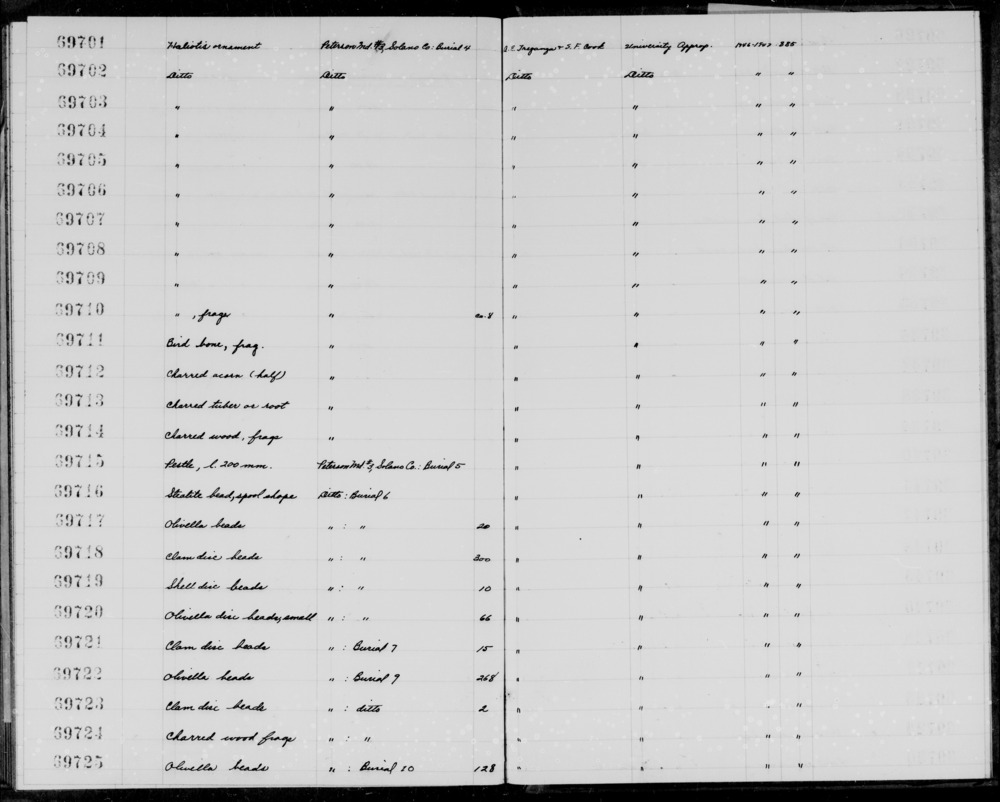 69701 Haliotis ornament Peterson Md. #3, Solano Co: Burial 4 A. E. Treganza & S. F. Cook University Approp. 1946-1947 385
69702 Ditto Ditto Ditto Ditto " "
69703 " " " " " "
69704 " " " " " "
69705 " " " " " "
69706 " " " " " "
69707 " " " " " "
69708 " " " " " "
69709 " " " " " "
69710 " , frags " ca. 8 " " " "
69711 Bird bone, frag. " " " " "
69712 Charred acorn (half) " " " " "
69713 Charred tuber or root " " " " "
69714 Charred wood, frags " " " " "
69715 Pestle, l. 200 mm. Peterson Md #3, Solano Co.: Burial 5 " " " "
69716 Steatite bead, spool shape Ditto: Burial 6 " " " "
69717 Olivella beads " : " 20 " " " "
69718 Clam disc beads " : " 300 " " " "
69719 Shell disc beads " : " 10 " " " "
69720 Olivella disc beads, small " : " 66 " " " "
69721 Clam disc beads " : Burial 7 15 " " " "
69722 Olivella beads " : Burial 9 268 " " " "
69723 Clam disc beads " : ditto 2 " " " "
69724 Charred wood frags " : " " " " "
69725 Olivella beads " : Burial 10 128 " " " "